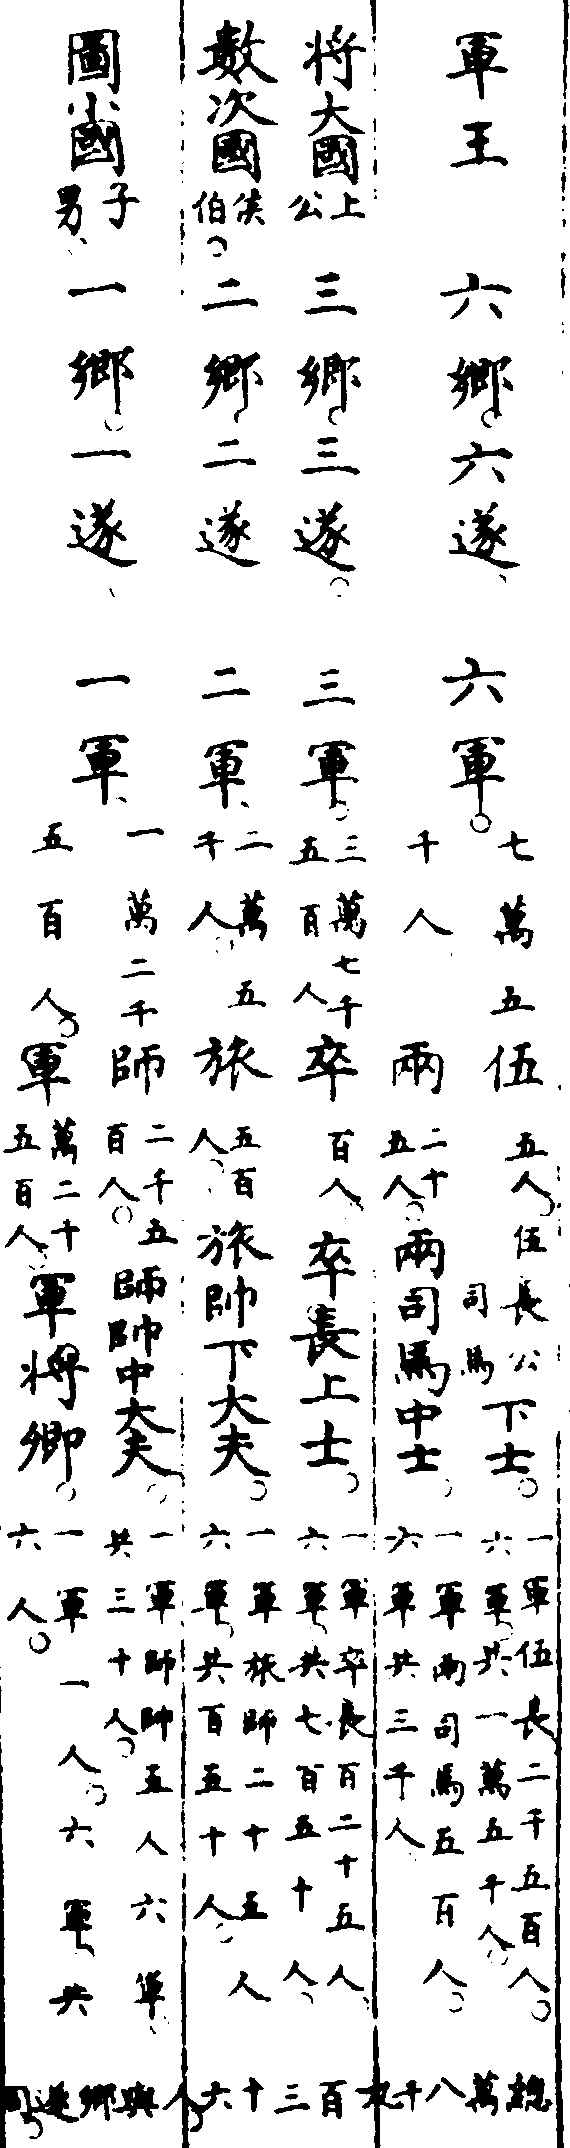 軍將數圖
王六鄉六遂
大國上公三鄉三遂
次國侯伯二鄉二遂
小國子男一鄉一遂
六軍七萬五千人
三軍三萬七千五百人
二軍二萬五千人
一軍一萬二千五百人
伍五人伍長公司馬下士
兩二十五人兩司馬中士
卒百人卒長上士
旅五百人旅帥下大夫
師二千五百人師帥中大夫
軍萬二千五百人軍將卿
一軍伍長二千五百人
六軍共一萬五千人
一軍兩司馬五百人
六軍共三千人
一軍卒長百二十五人
六軍共七百五十人
一軍旅師二十五人
六軍共百五十人
一軍師帥五人六軍
共三十人
一軍一人六軍共
六人
總萬八千九百三十六人與鄉遂同